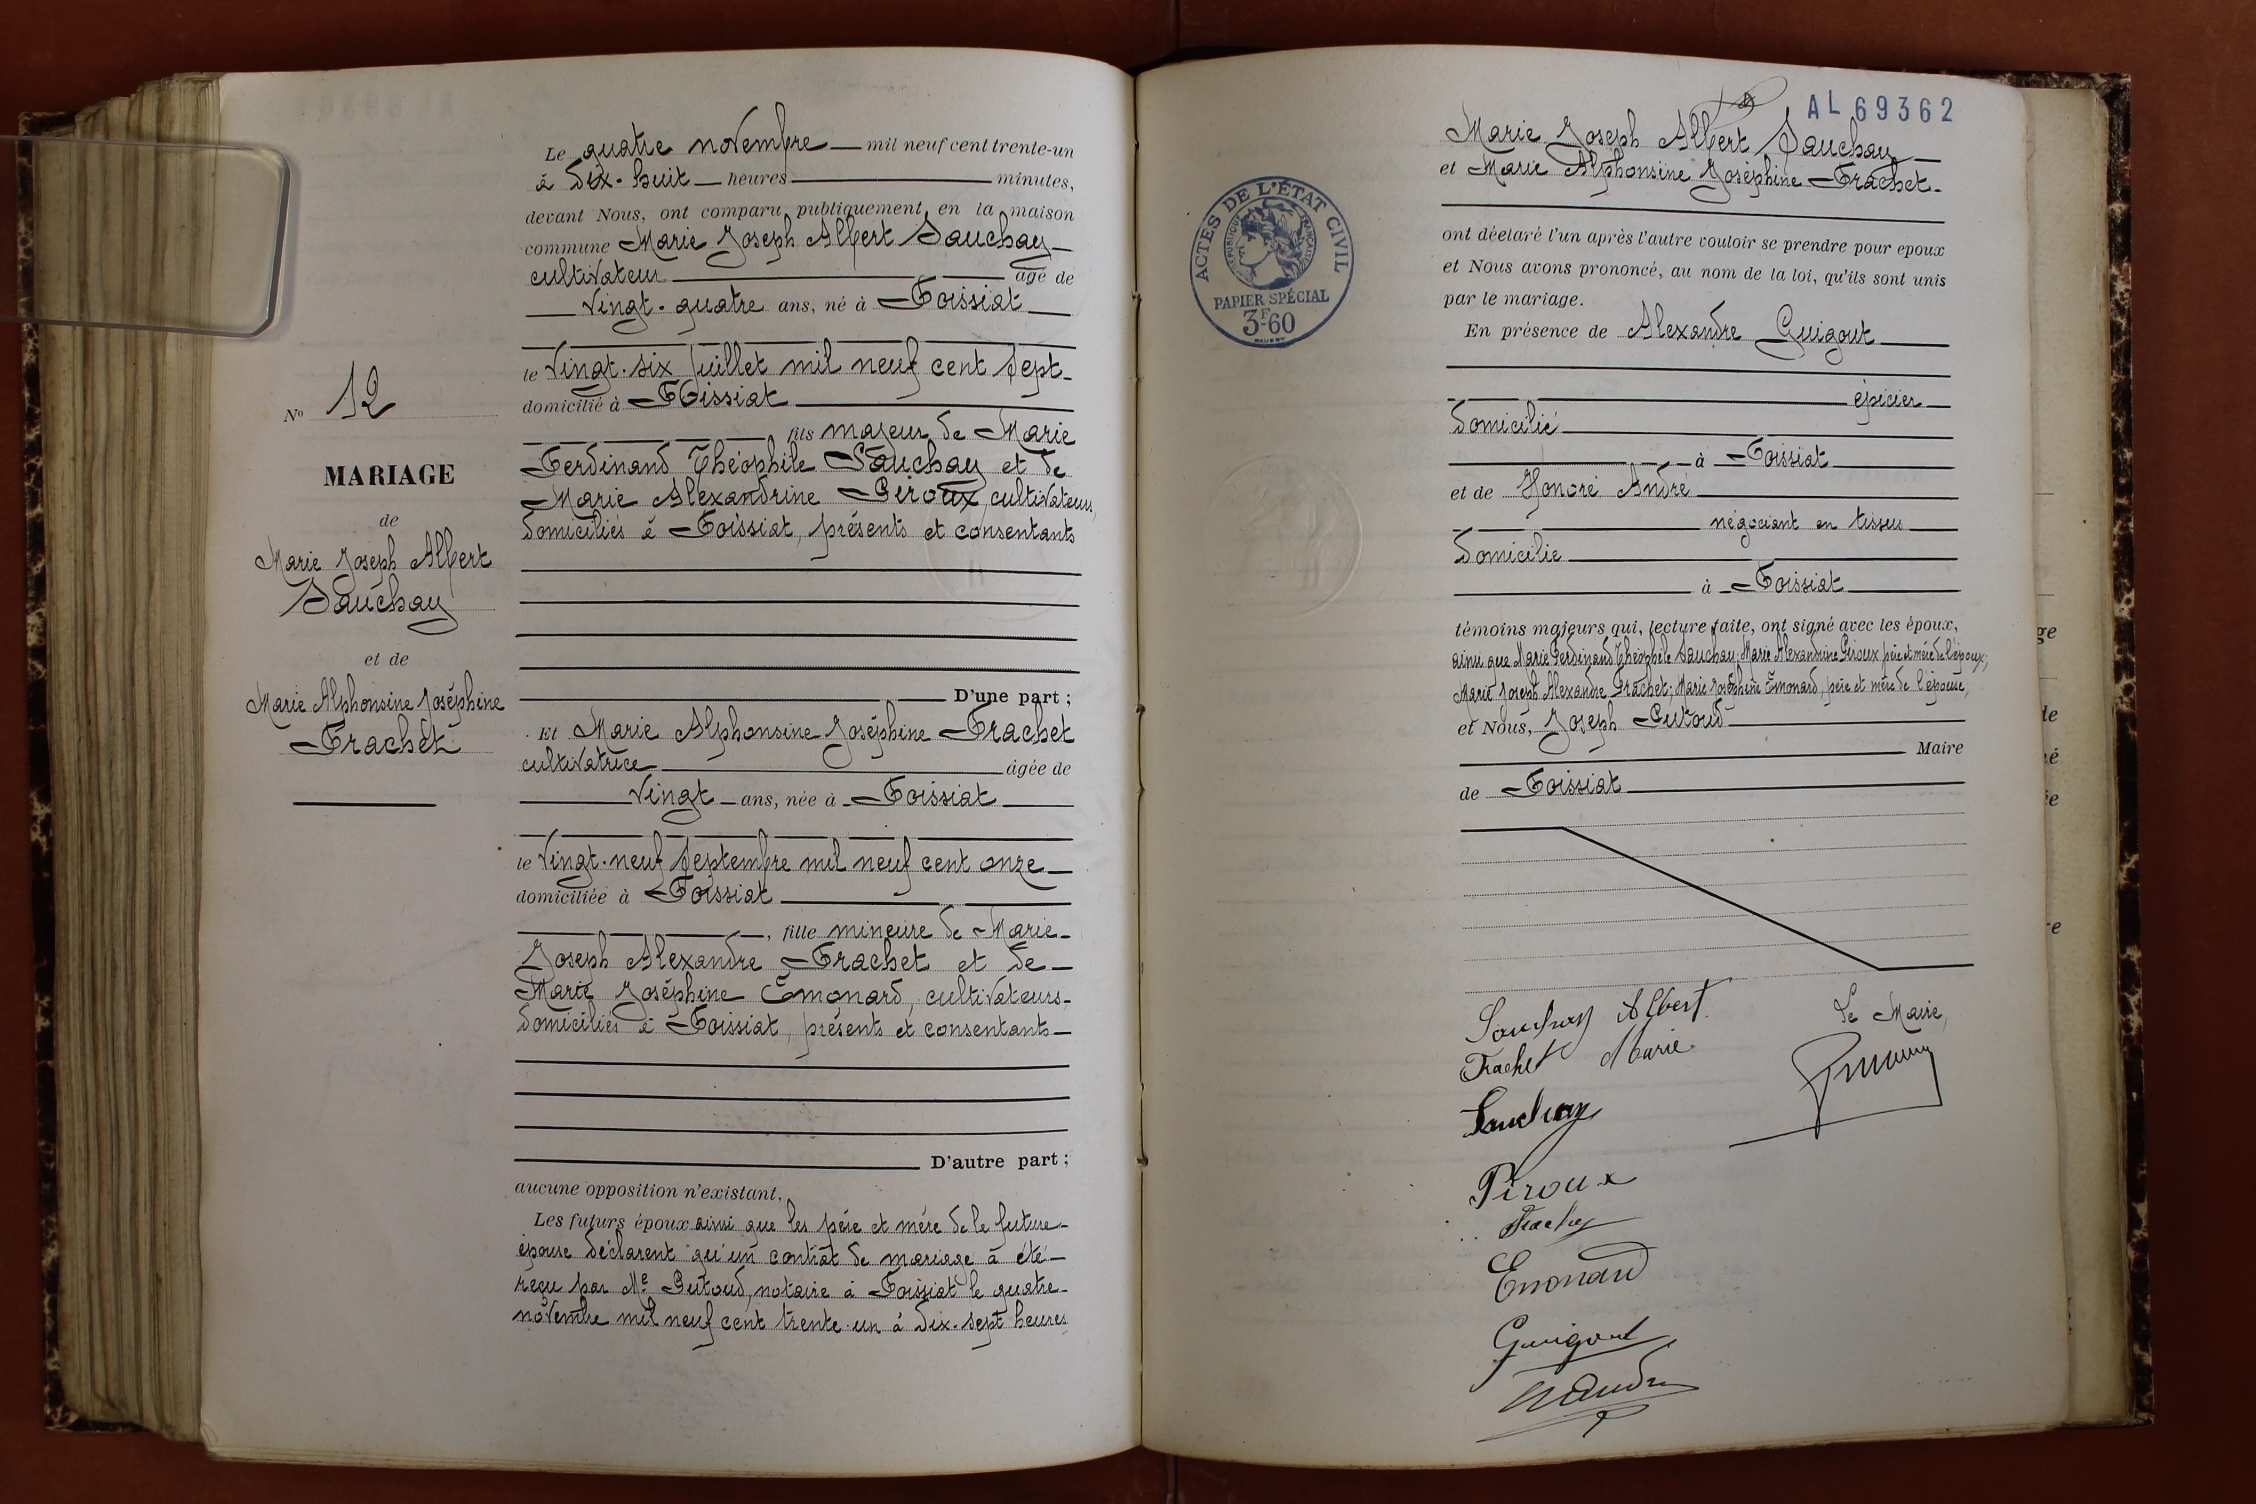 Le quatre novembre mil neuf cent trente-un
à dix-huit heures minutes,
devant Nous, ont comparu publiquement en la maison
commune Marie Joseph Albert Sauchay
cultivateur âgé de
vingt-quatre ans, né à Foissiat
le vingt-six juillet mil neuf cent sept
domicilié à Foissiat
fils majeur de Marie
Ferdinand Théophile Sauchay et de
Marie Alexandrine Piroux, cultivateurs,
domiciliés à Foissiat, présents et consentants
D'une part ;
Et Marie Alphonsine Joséphine Frachet
cultivatrice âgée de
vingt ans, née à Foissiat
le vingt-neuf septembre mil neuf cent onze
domiciliée à Foissiat
, fille mineure de Marie
Joseph Alexandre Frachet et de
Marie Joséphine Emonard, cultivateurs
domiciliés à Foissiat, présents et consentants
D'autre part ;
aucune opposition n'existant,
Les futurs époux ainsi que les père et mère de la future
épouse déclarent qu'un contrat de mariage a été
reçu par Me Putoud, notaire à Foissiat le quatre
novembre mil neuf cent trente-un à dix-sept heures
No 12
MARIAGE
de
Marie Joseph Albert
Sauchay
et de
Marie Alphonsine Joséphine
Frachet
AL 69362
Marie Joseph Albert Sauchay
et Marie Alphonsine Joséphine Frachet
ont déclaré l'un après l'autre vouloir se prendre pour epoux
et Nous avons prononcé, au nom de la loi, qu'ils sont unis
par le mariage.
En présence de Alexandre Guigout
épicier
domicilié
à Foissiat
et de Honoré André
négociant en tissus
domicilié
à Foissiat
témoins majeurs qui, lecture faite, ont signé avec les époux,
ainsi que Marie Ferdinand Théophile Sauchay; Marie Alexandrine Piroux père et mère de l'époux;
Marie Joseph Alexandre Frachet; Marie Joséphine Emonard, père et mère de l'épouse,
et Nous, Joseph Putoud
Maire
de Foissiat
ACTES DE L'ÉTAT CIVIL
RÉPUBLIQUE FRANÇAISE
PAPIER SPÉCIAL
3F60
Sauchay Albert
Frachet Marie
Le Maire,
Sauchay
Piroux
Frachet
Emonard
Guigout